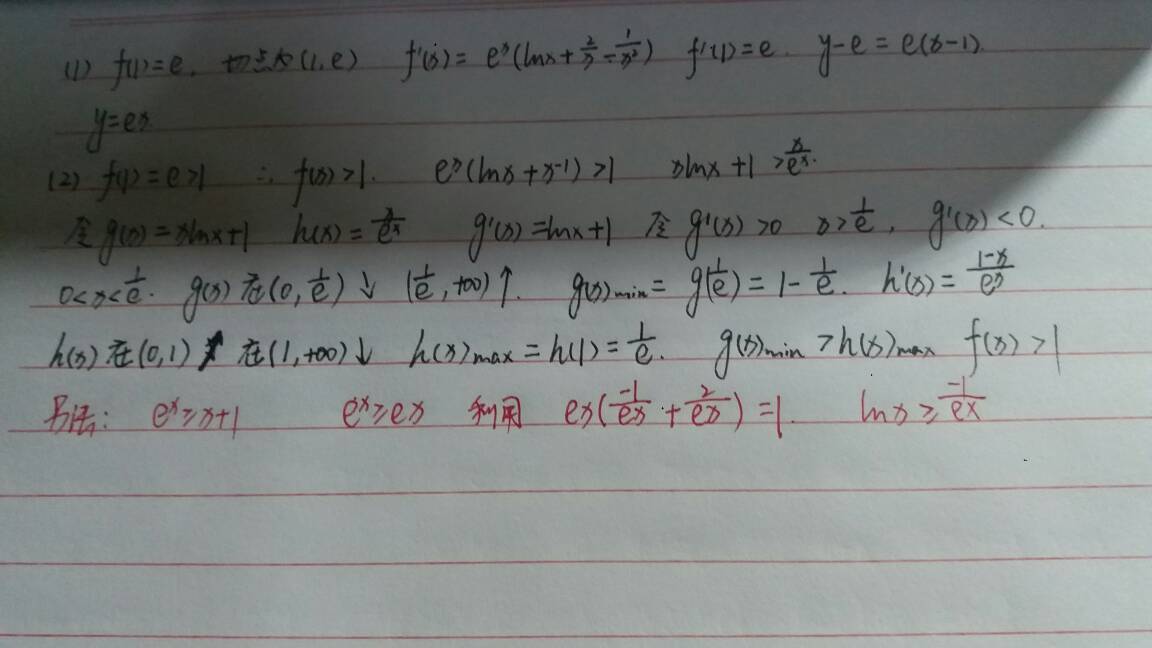 (1) f(1)=e. 切点为(1,e) f'(x)= eˣ(lnx+2/x-1/x²) f'(1)=e. y-e=e(x-1).
y=ex
(2) f(1)=e>1 ∴ f(x)>1. eˣ(lnx+x⁻¹)>1 xlnx+1>x/eˣ.
令g(x)=xlnx+1 h(x)=x/eˣ g'(x)=lnx+1 令g'(x)>0 x>1/e, g'(x)<0.
0<x<1/e. g(x)在(0,1/e)↓ (1/e,+∞)↑. g(x)min=g(1/e)=1-1/e. h'(x)=(1-x)/eˣ
h(x)在(0,1)↑ 在(1,+∞)↓ h(x)max=h(1)=1/e. g(x)min>h(x)max f(x)>1
另法: eˣ≥x+1 eˣ≥ex 利用 ex(-1/ex+2/ex)=1. lnx≥-1/ex